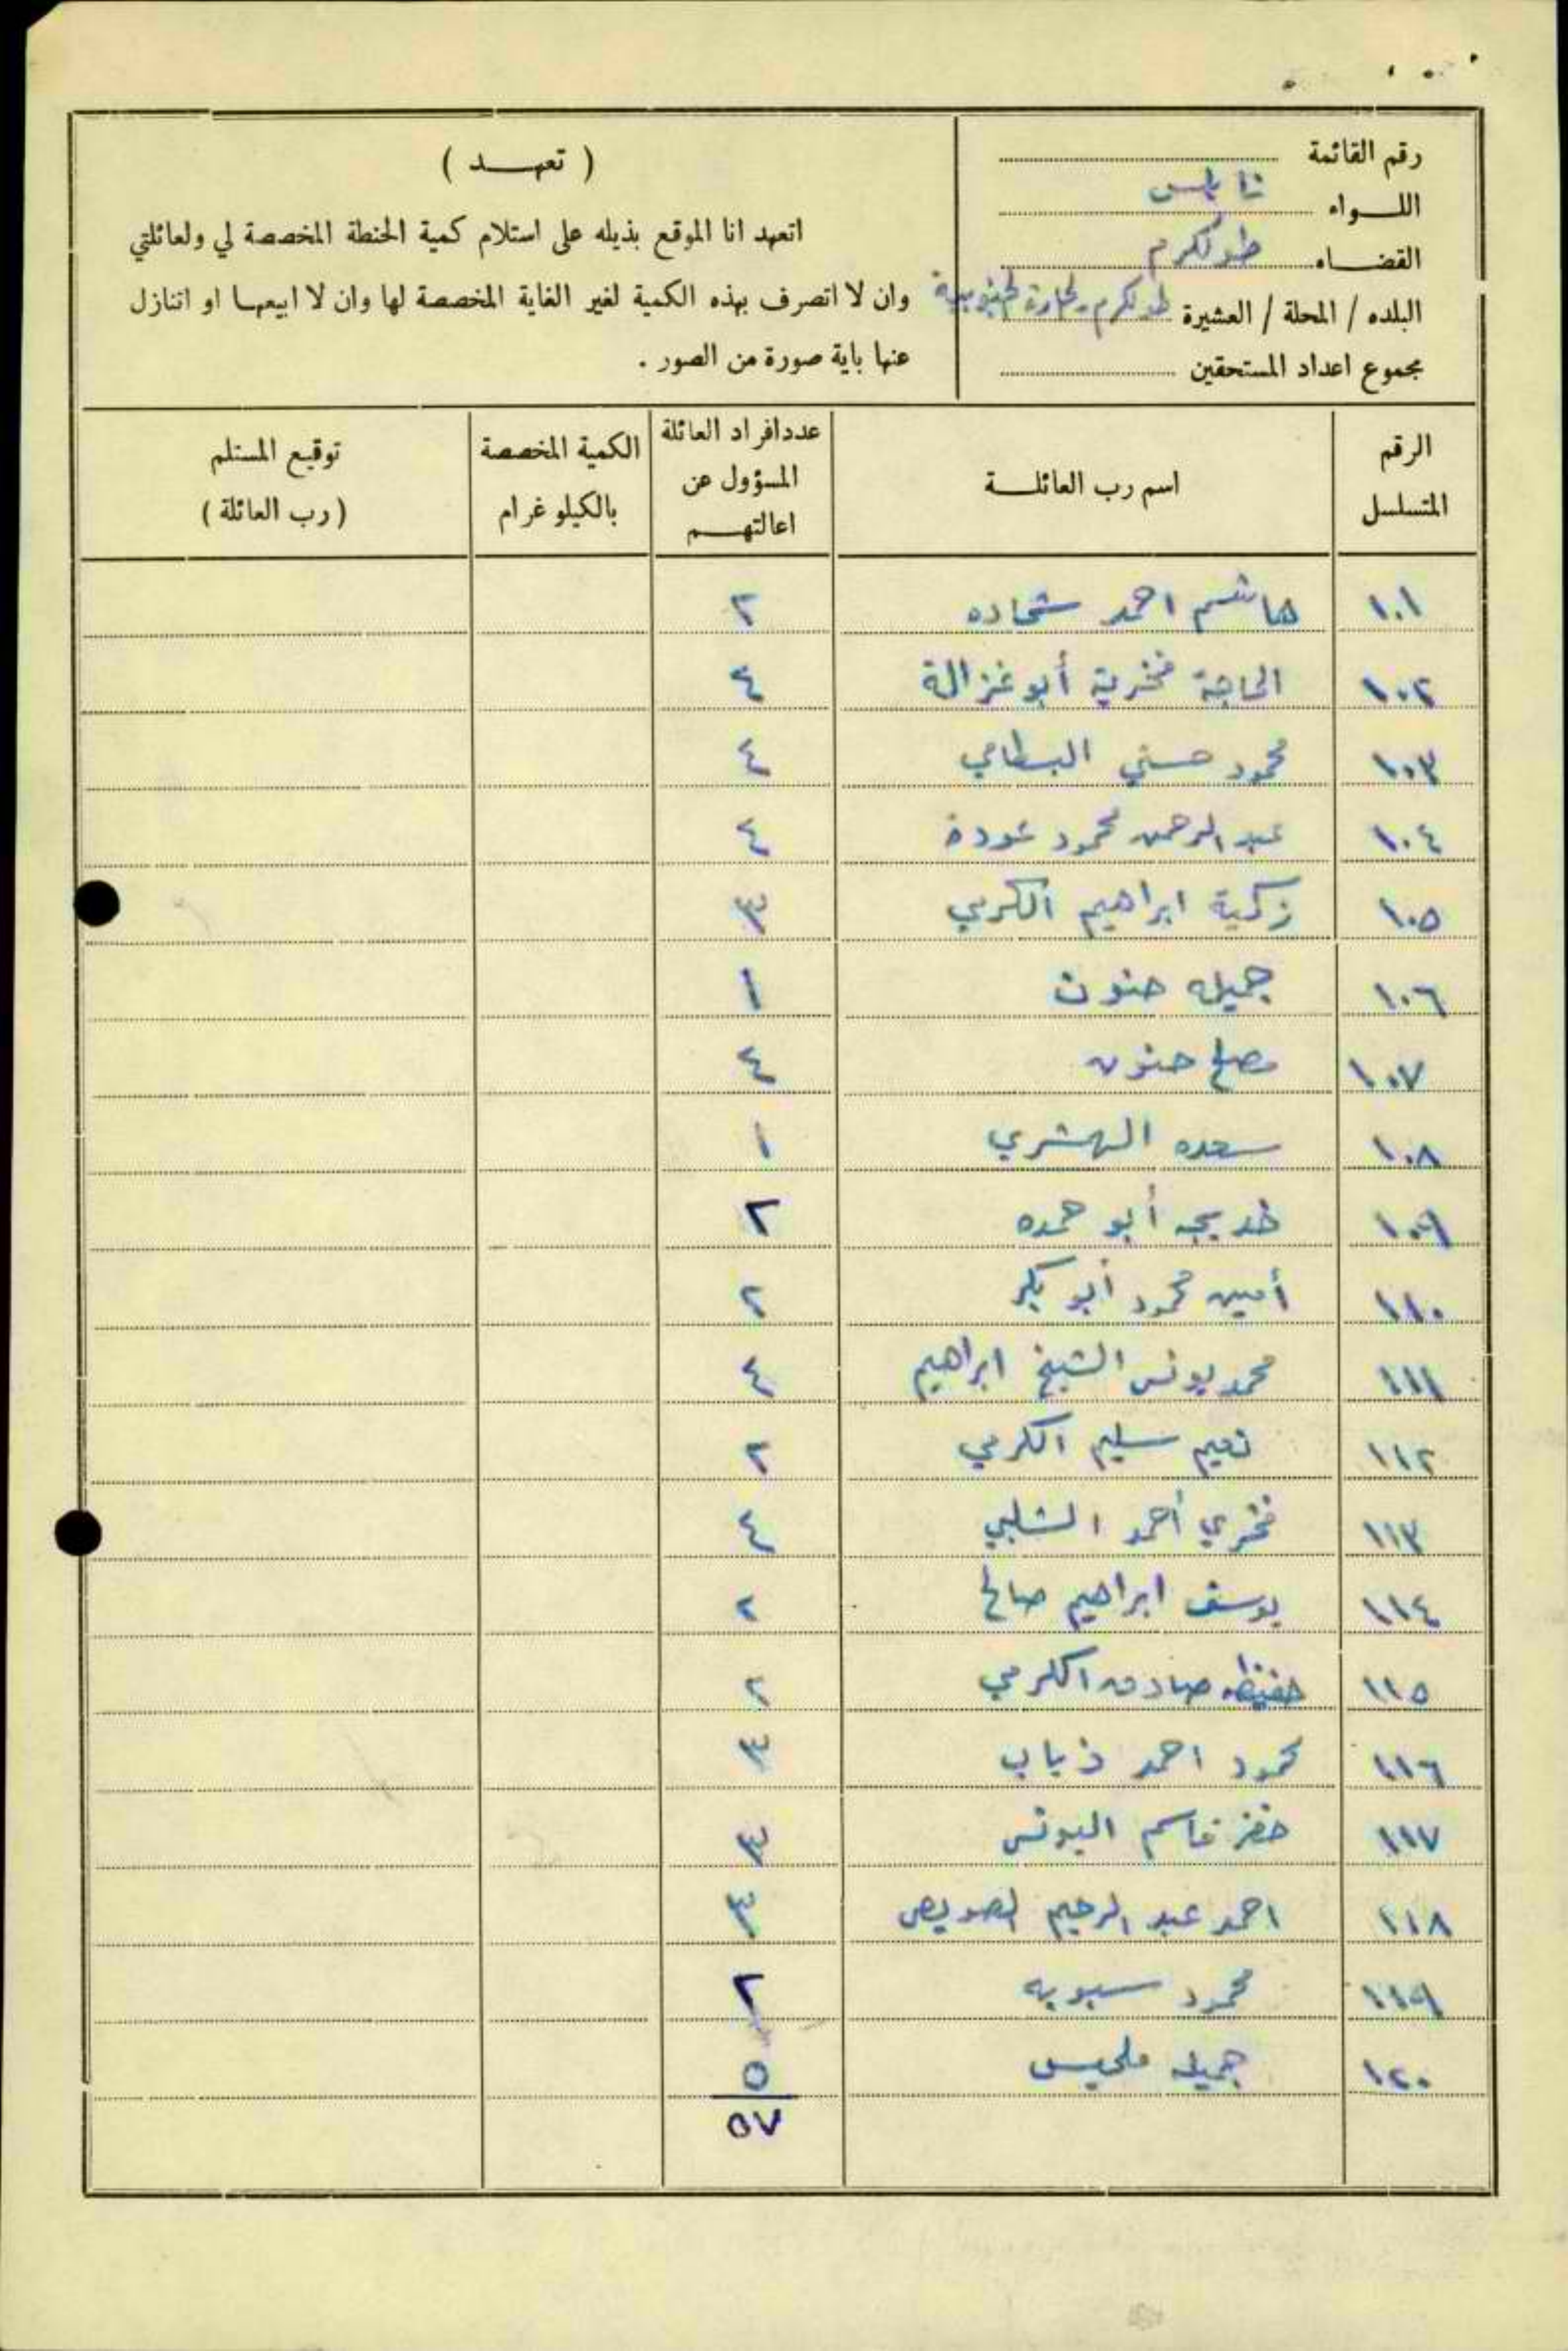 رقم القائمة
اللـــواء نابلس
القضـــاء طولكرم
البلده / المحلة / العشيرة طولكرم الحارة الجنوبية
مجموع اعداد المستحقين
( تعهـــد )
اتعهد انا الموقع بذيله على استلام كمية الحنطة المخصصة لي ولعائلتي
وان لا اتصرف بهذه الكمية لغير الغاية المخصصة لها وان لا ابيعهـا او اتنازل
عنها باية صورة من الصور .
الرقم المتسلسل | اسم رب العائلــة | عدد افراد العائلة المسؤول عن اعالتهـــم | الكمية المخصصة بالكيلو غرام | توقيع المستلم ( رب العائلة )
١٠١ هاشم احمد شحاده ٢
١٠٢ الحاجة فخرية أبو غزالة ٤
١٠٣ محمود حسني البسطامي ٤
١٠٤ عبد الرحمن محمود عودة ٤
١٠٥ زكية ابراهيم الكرمي ٣
١٠٦ جميله حنون ١
١٠٧ مصلح حنون ٤
١٠٨ سعده المهشري ١
١٠٩ خديجه أبو حمده ٢
١١٠ أمين محمود أبو بكر ٢
١١١ محمد يونس الشيخ ابراهيم ٤
١١٢ نعيم سليم الكرمي ٢
١١٣ فخري أحمد الشلبي ٤
١١٤ يوسف ابراهيم صالح ٢
١١٥ حفيظه صادق الكرمي ٢
١١٦ محمود احمد ذياب ٣
١١٧ خضر قاسم اليونس ٣
١١٨ احمد عبد الرحيم الصويص ٣
١١٩ محمود سبوبه ٢
١٢٠ جميله ملحيس ٥
٥٧